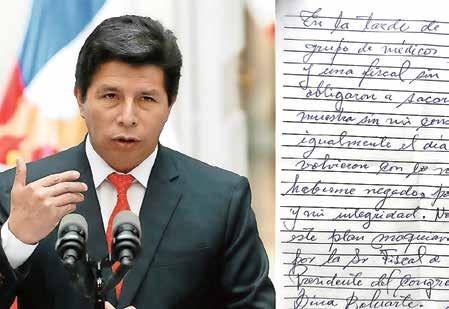 En la tarde de
grupo de médicos
y una fiscal sin
obligaron a sacar
muestra sin mi con
igualmente el día
volvieron con lo
haberme negado, po
y mi integridad. No
este plan maquiav
por la Sr Fiscal d
Presidente del Congr
Dina Boluarte.